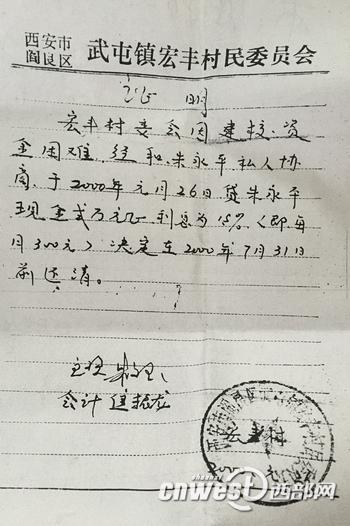 西安市
阎良区
武屯镇宏丰村民委员会
证明
宏丰村委会因建校，资
金困难，经和朱永平私人协
商，于2000年元月26日贷朱永平
现金贰万元，利息为15‰（即每
月300元）决定在2000年7月31日
前还清。
主现
会计
宏丰村
cnwest西部网